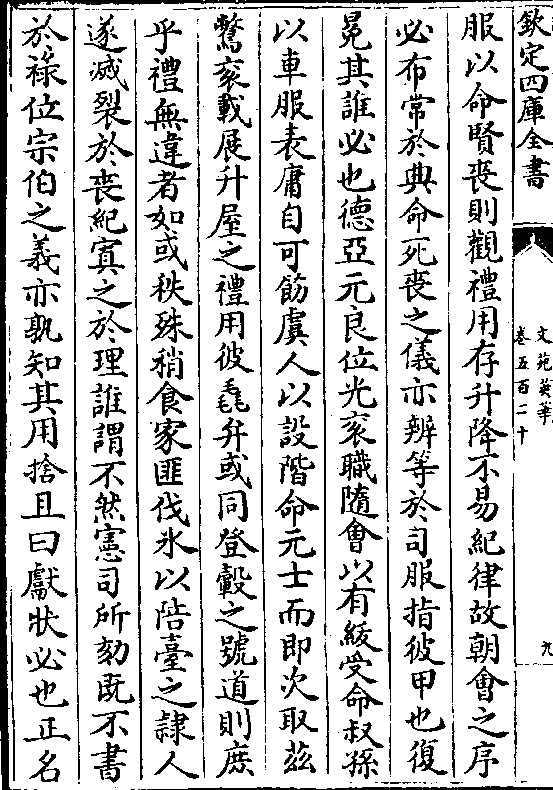 欽定四庫全書
文苑英華
卷五百二十
九
服以命賢喪則觀禮用存升降不易紀律故朝會之序
必布常於典命死喪之儀亦辨等於司服指彼甲也復
冕其誰必也德亞元良位光衮職隨會以有緩受命叔孫
以車服表庸自可飭虞人以設階命元士而即次取兹
驚衮載展升屋之禮用彼毳弁或同登轂之號道則庶
乎禮無違者如或秩殊稍食家匪伐氷以陪臺之隸人
遂滅裂於喪紀寘之於理誰謂不然憲司所劾既不書
於祿位宗伯之義亦孰知其用捨且曰獻狀必也正名